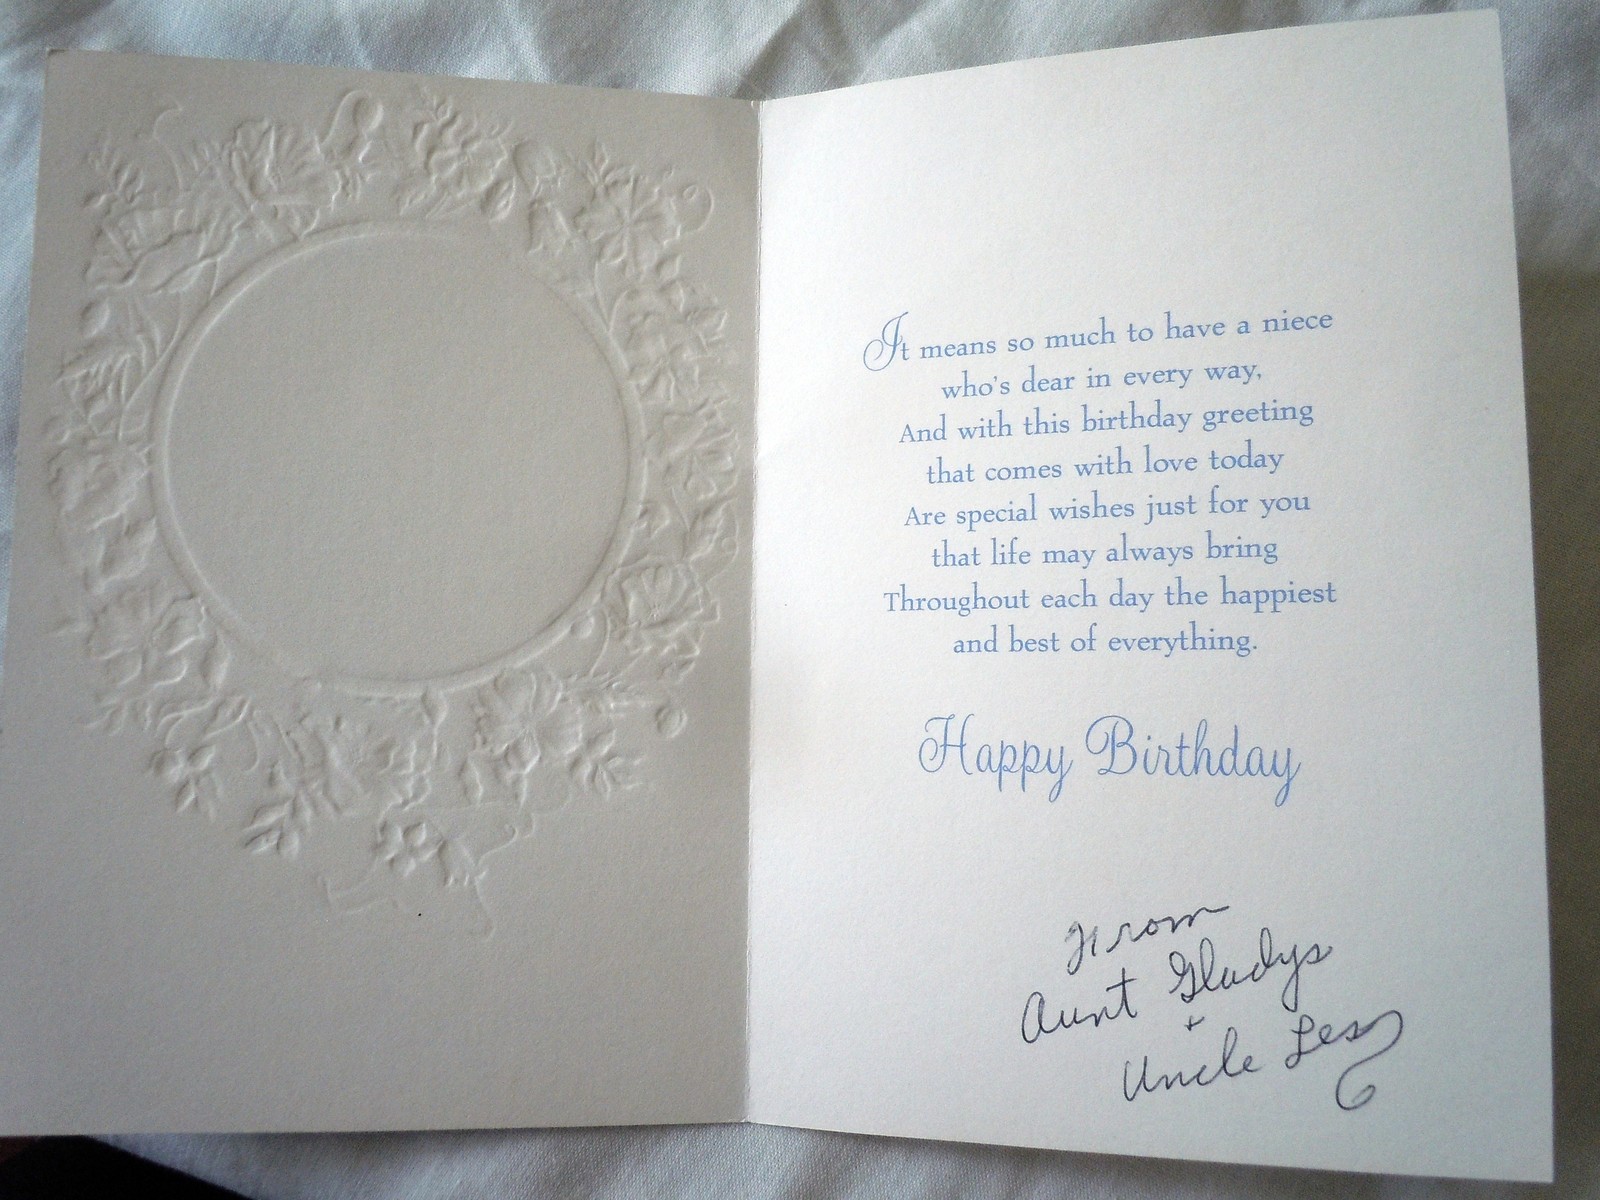 It means so much to have a niece
who's dear in every way,
And with this birthday greeting
that comes with love today
Are special wishes just for you
that life may always bring
Throughout each day the happiest
and best of everything.
Happy Birthday
From
Aunt Gladys
+
Uncle Les